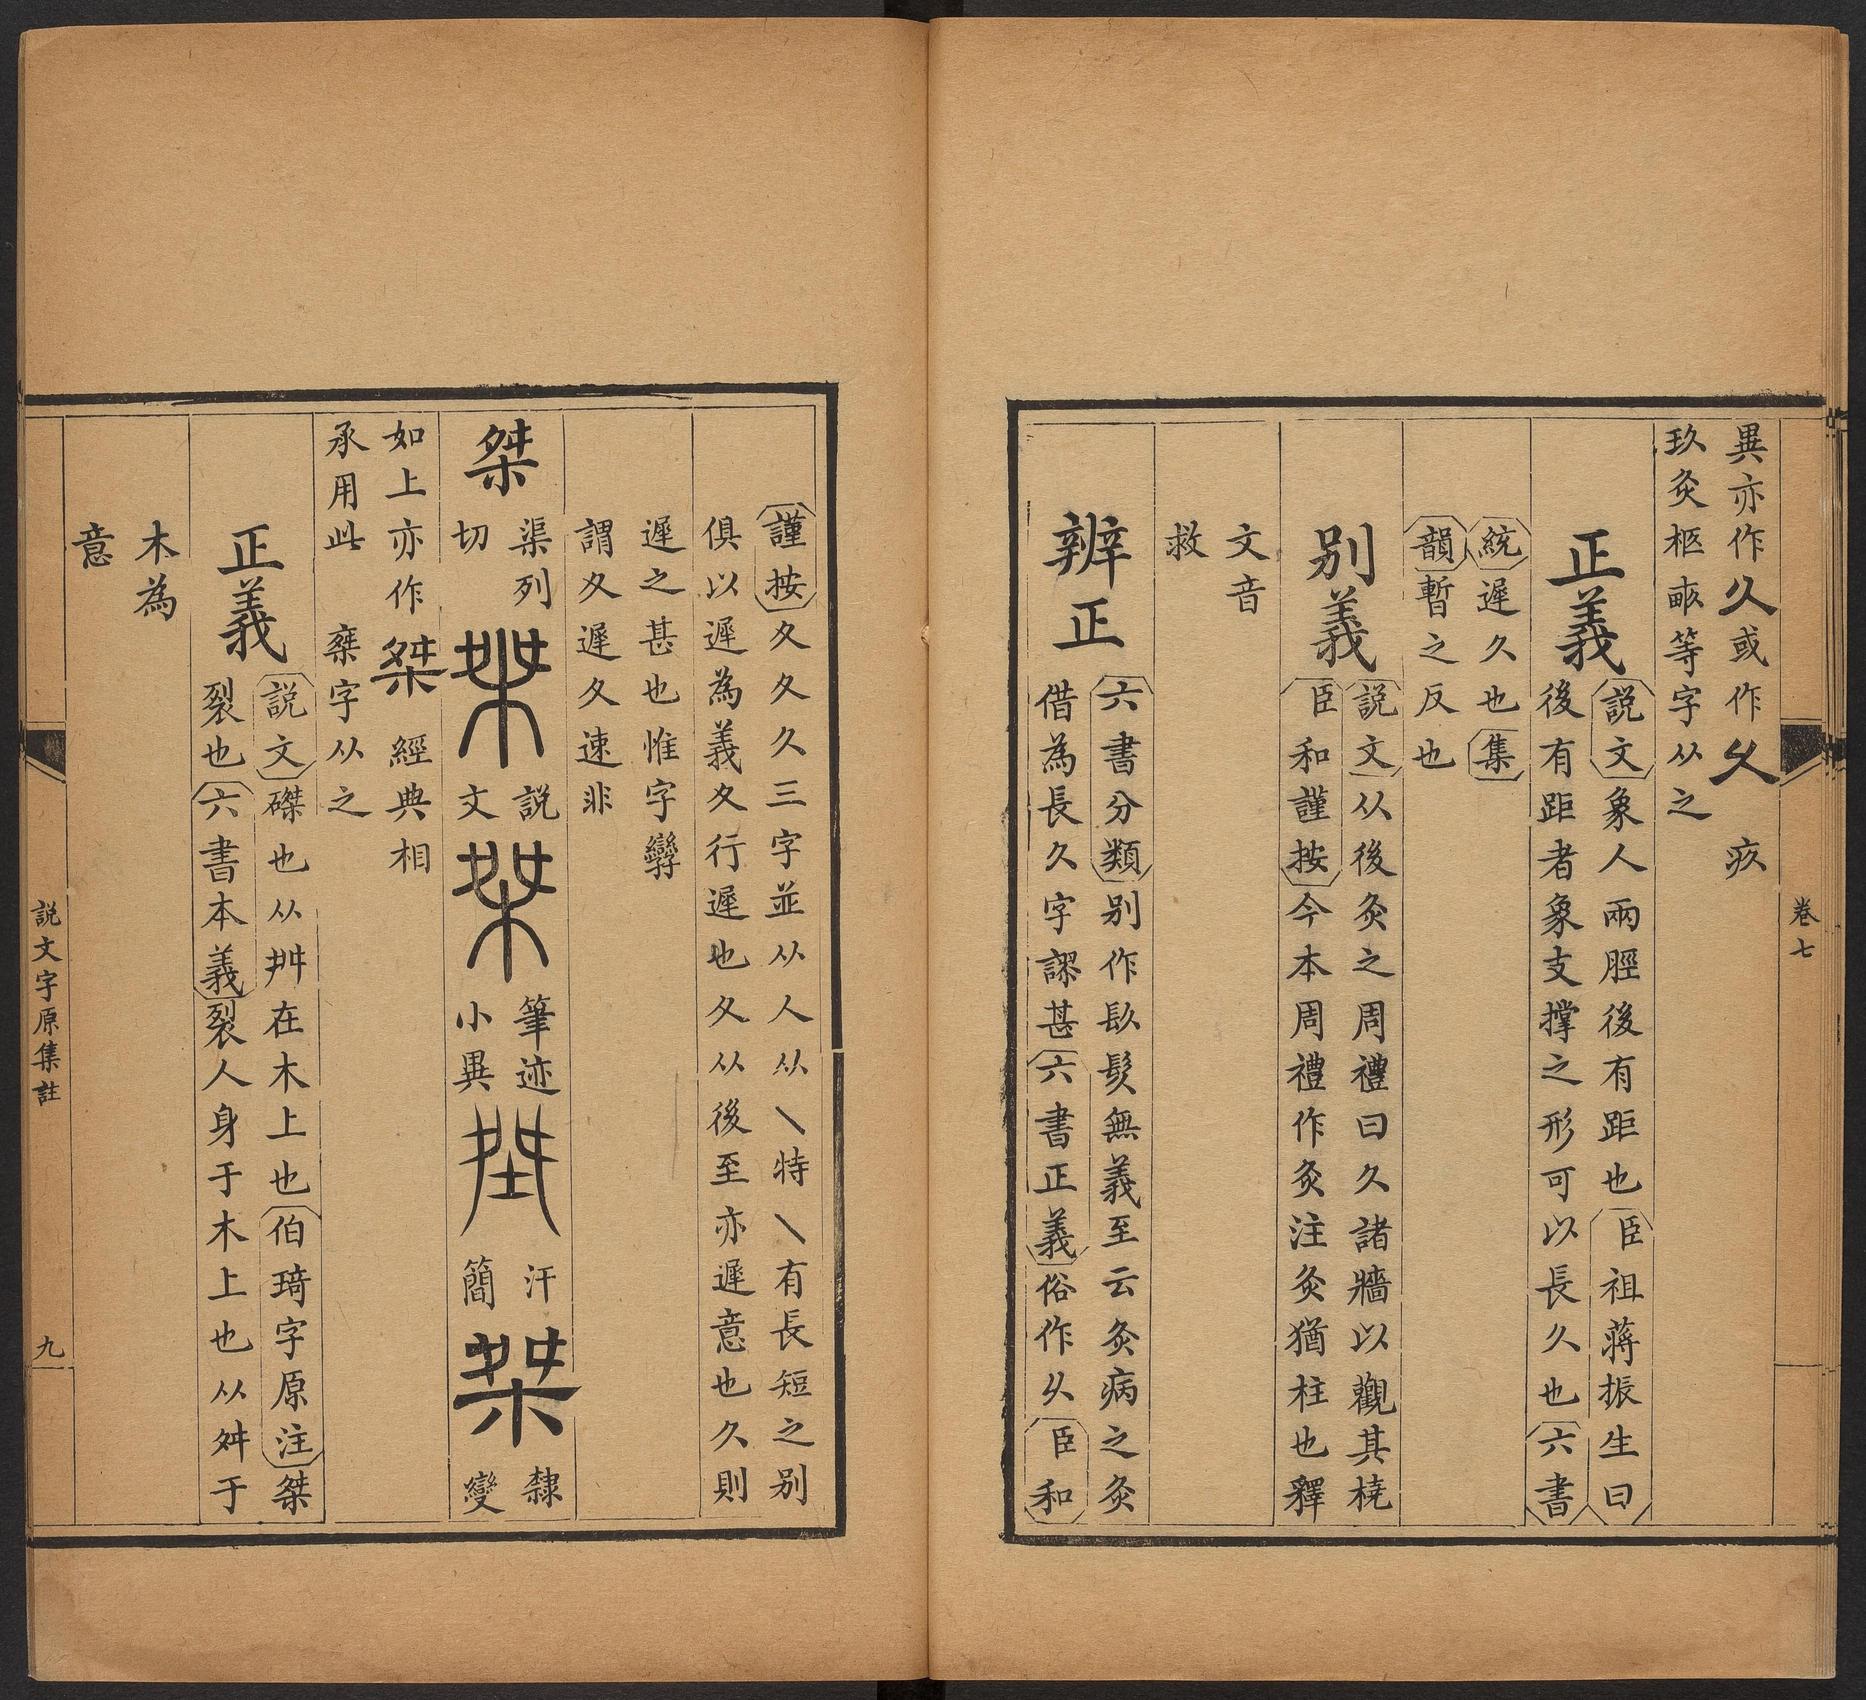 卷七
異亦作久或作乆 疚
玖灸柩畞等字从之
正義
説文象人兩脛後有距也臣祖蔣振生曰
後有距者象支撐之形可以長久也六書
統遲久也集
韻暫之反也
别義
説文从後灸之周禮曰久諸牆以觀其橈
臣和謹按今本周禮作灸注灸猶柱也釋
文音
救
辨正
六書分類别作镹髮無義至云灸病之灸
借為長久字謬甚六書正義俗作乆臣和
謹按夊夂久三字並从人从乀特乀有長短之别
俱以遲為義夊行遲也夂从後至亦遲意也久則
遲之甚也惟字孿
謂夊遲夂速非
桀
渠列
切
説
文
筆迹
小異
汗
簡
桀
隸
變
如上亦作桀 經典相
承用此 椉字从之
正義
説文磔也从舛在木上也伯琦字原注桀
裂也六書本義裂人身于木上也从舛于
木為
意
説文字原集註
九